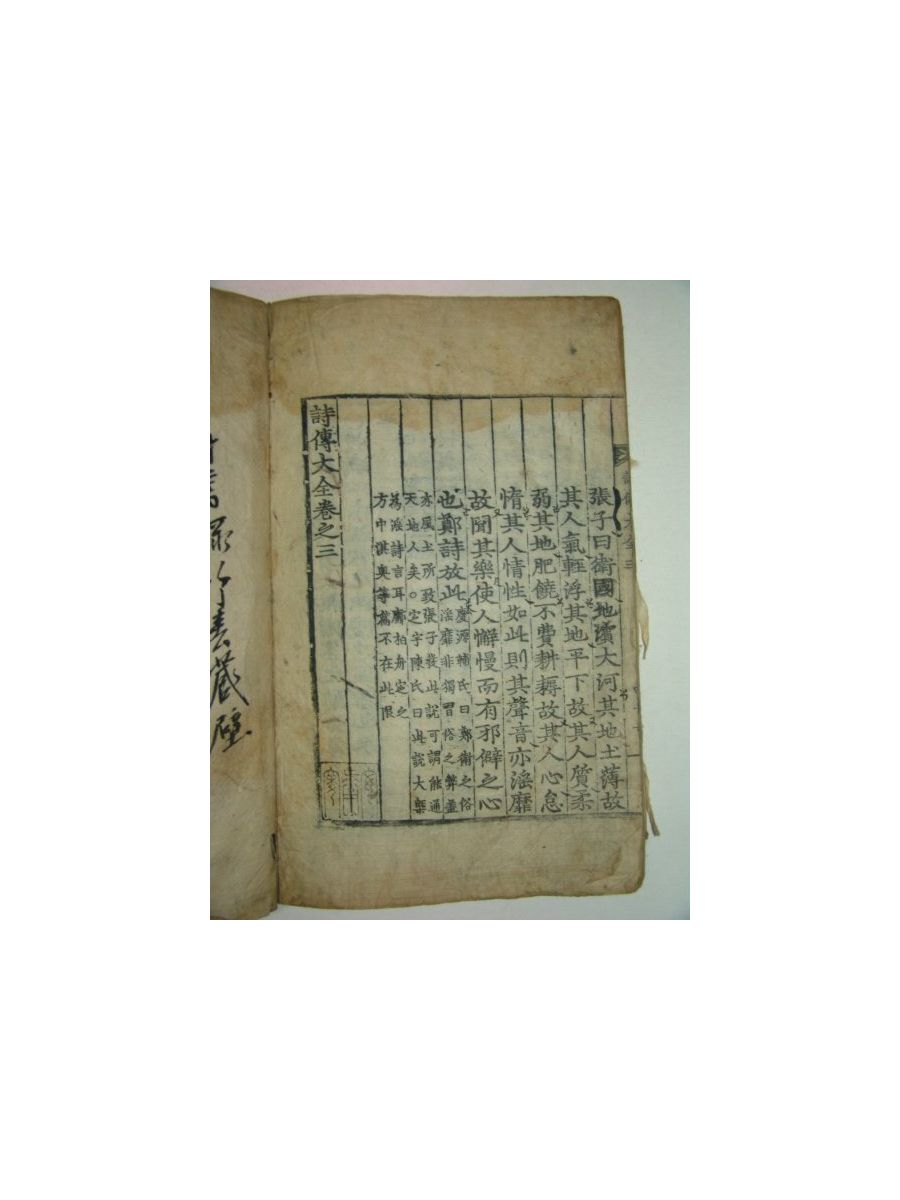 張子曰衛國地濱大河其地土薄故
其人氣輕浮其地平下故其人質柔
弱其地肥饒不費耕耨故其人心怠
惰其人情性如此則其聲音亦淫靡
故聞其樂使人懈慢而有邪僻之心
也鄭詩放此
慶源輔氏曰鄭衛之俗
淫靡非獨習俗之弊盖
亦風土所致張子發此說可謂能通
天地人矣○定宇陳氏曰此說大槩
為淫詩言耳鄘柏舟定之
方中淇奥等篇不在此限
詩傳大全卷之三
藏壁